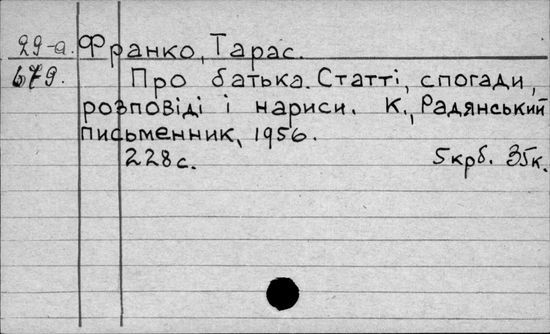 29-а. Франко, Тарас.
679. Про батька. Статті, спогади,
розповіді і нариси. К., Радянський
письменник, 1956.
228 с. 5 крб. 35 к.